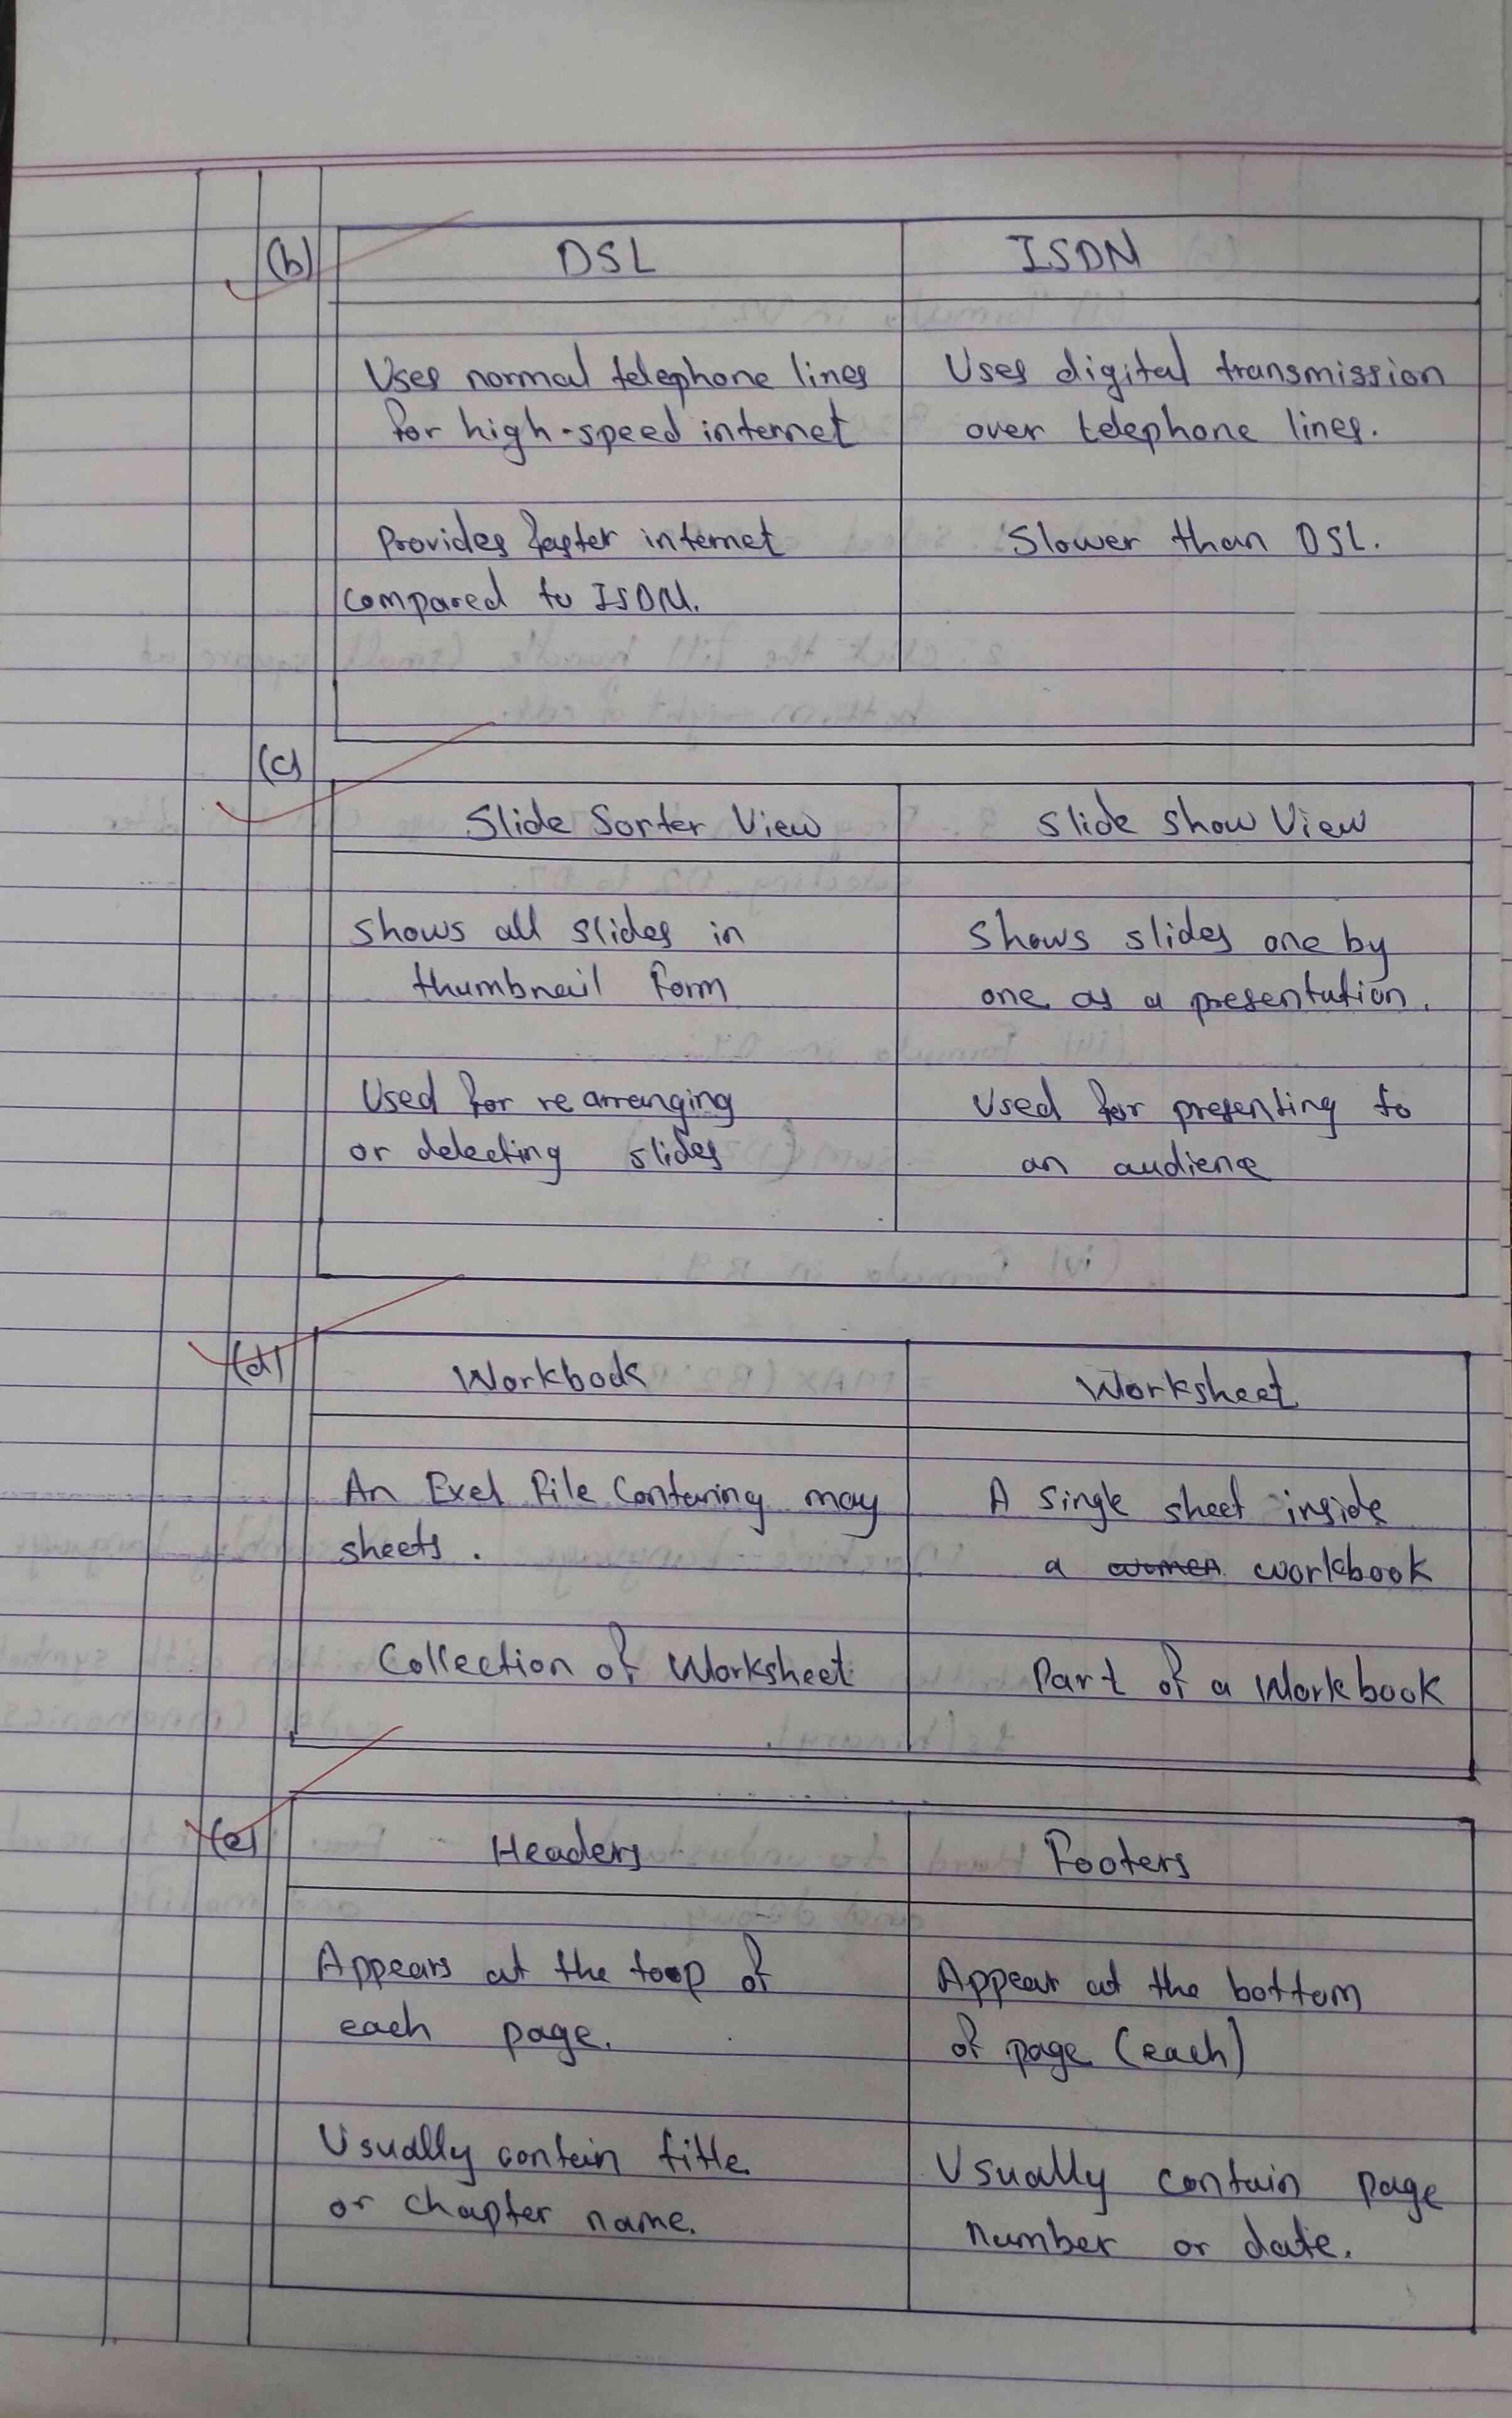 (b) DSL ISDN
Uses normal telephone lines
for high-speed internet
Uses digital transmission
over telephone lines.
Provides faster internet
compared to ISDN.
Slower than DSL.
(c)
Slide Sorter View Slide Show View
Shows all slides in
thumbnail form
Shows slides one by
one as a presentation.
Used for rearranging
or delecting slides
Used for presenting to
an audience
(d) Workbook Worksheet
An Exel File Contaning may
sheets.
A Single sheet inside
a workbook
Collection of Worksheet
Part of a Workbook
(e) Headers Footers
Appears at the toop of
each page.
Appear at the bottom
of page (each)
Usually contain title
or chapter name.
Usually contain page
number or date.